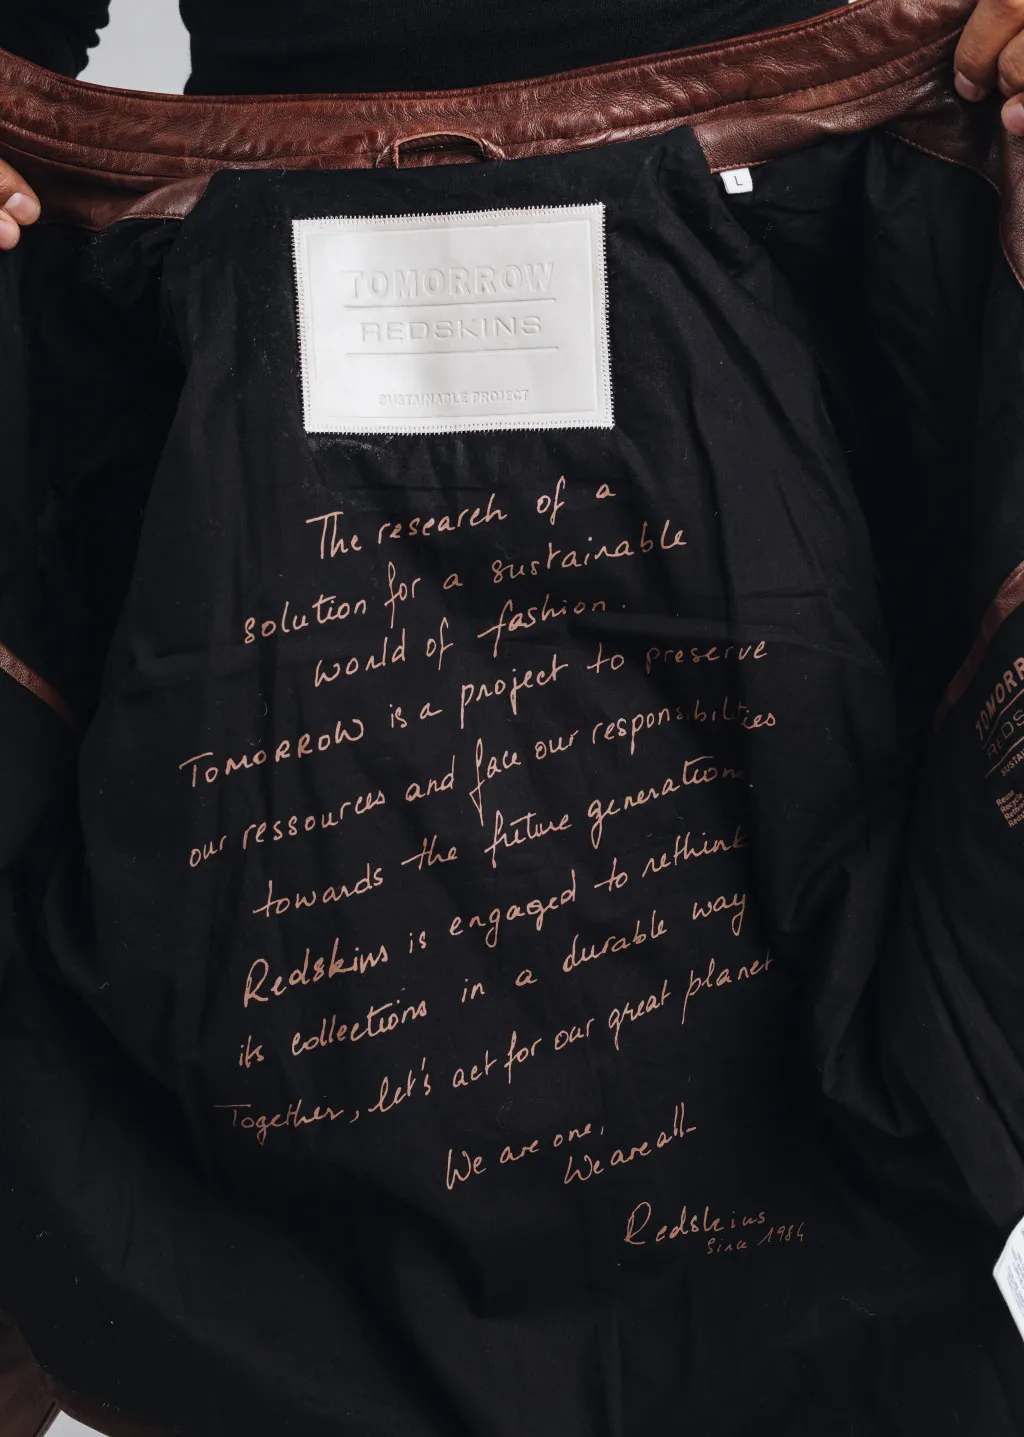 L
TOMORROW
REDSKINS
SUSTAINABLE PROJECT
The research of a
solution for a sustainable
world of fashion.
TOMORROW is a project to preserve
our ressources and face our responsibilities
towards the future generations.
Redskins is engaged to rethink
its collections in a durable way
Together, let's act for our great planet
We are one,
We are all
Redskins
Since 1984
TOMORR
REDS
SUSTA
Reuse
Recycle